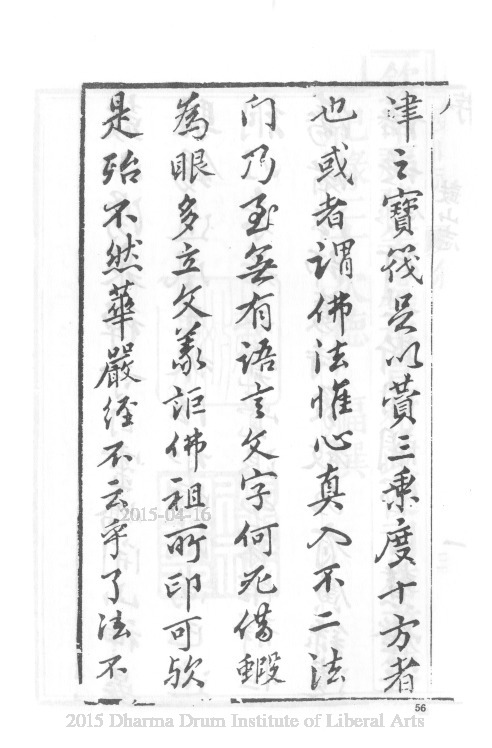 津之寶筏足以賷三乘度十方者
也或者謂佛法惟心真入不二法
门乃至無有語言文字何死借蝦
為眼多立文義詎佛祖所印可欤
是殆不然華嚴经不云乎了法不
2015-04-16
56
2015 Dharma Drum Institute of Liberal Arts